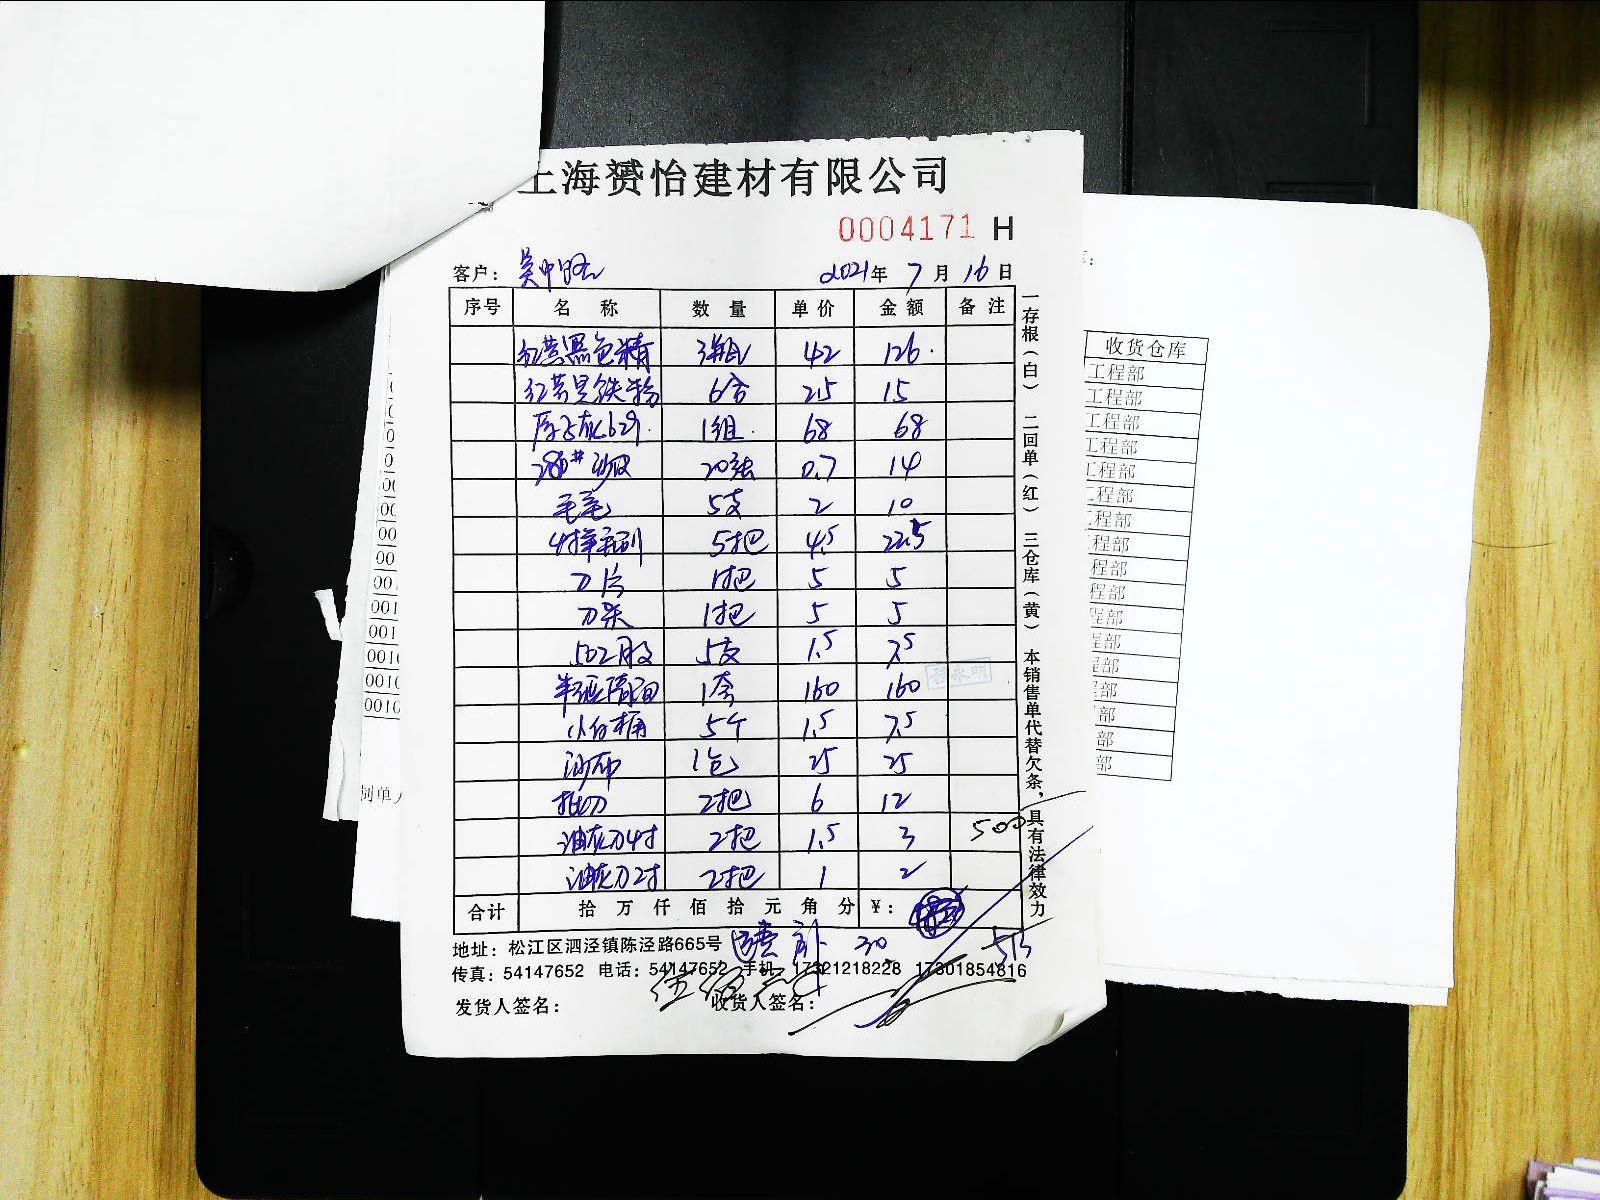 上海赟怡建材有限公司
0004171 H
客户： 吴中路 2021年 7月 16日
序号 名称 数量 单价 金额 备注
红黄黑色精 3瓶 42 126.
红黄黑铁粉 6合 2.5 15
1组. 68 68
280# 砂皮 20张 0.7 14
5支 2 10
5把 4.5 22.5
刀片 1把 5 5
刀架 1把 5 5
502胶 5支 1.5 7.5
1套 160 160
小白桶 5个 1.5 7.5
砂布 1包 25 25
批刀 2把 6 12
油灰刀4寸 2把 1.5 3
500
油灰刀2寸 2把 1 2
合计 拾万仟佰拾元角分 ¥：
30. 513
地址：松江区泗泾镇陈泾路665号
传真：54147652 电话：54147652 手机：17321218228 17301854816
发货人签名： 收货人签名：
一存根（白） 二回单（红） 三仓库（黄） 本销售单代替欠条，具有法律效力
收货仓库
工程部
工程部
工程部
工程部
工程部
工程部
程部
程部
程部
程部
部
部
部
部
部
部
部
制单人